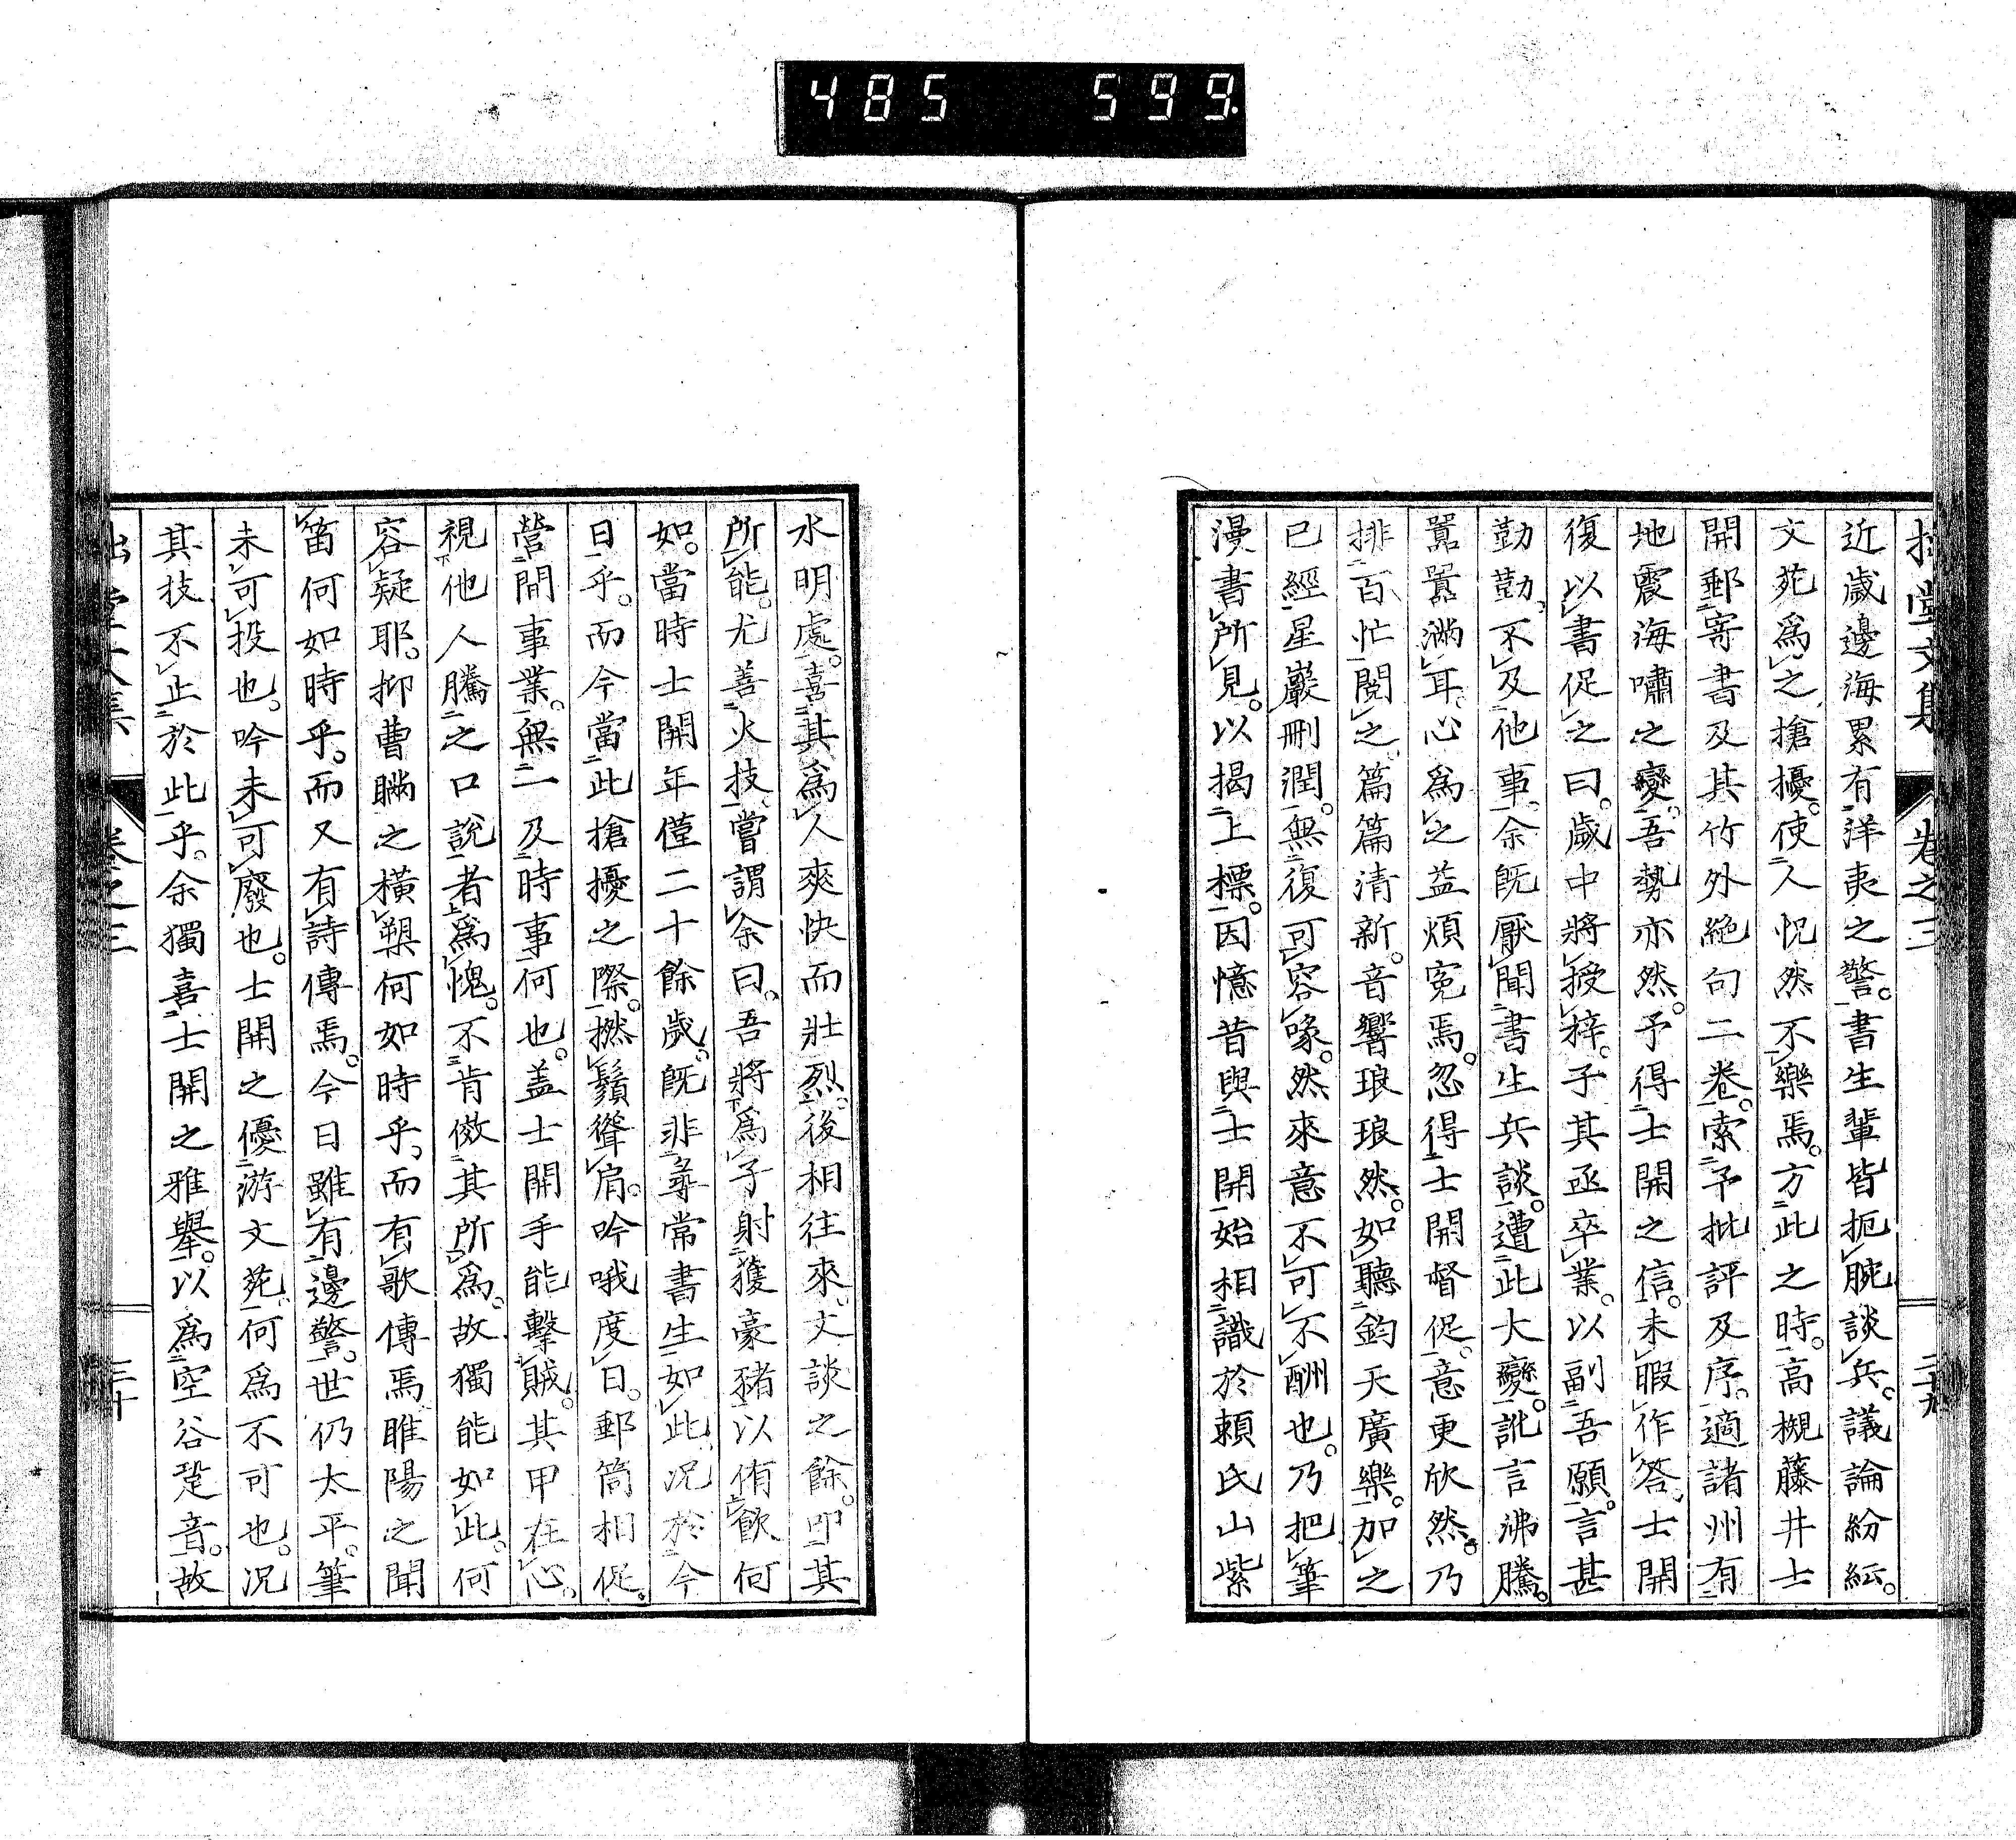 485 599.
近歲邊海累有洋夷之警。書生輩皆扼腕談兵。議論紛紜。
文苑爲之搶擾。使人怳然不樂焉。方此之時。高槻藤井士
開郵寄書及其竹外絶句二卷。索予批評及序。適諸州有
地震海嘯之變。吾勢亦然。予得士開之信。未暇作答。士開
復以書促之曰。歲中將授梓。子其亟卒業。以副吾願。言甚
勤勤。不及他事。余既厭聞書生兵談。遭此大變。訛言沸騰。
囂囂滿耳。心爲之益煩冤焉。忽得士開督促。意更欣然。乃
排百忙閱之。篇篇清新。音響琅琅然。如聽鈞天廣樂。加之
已經星巖刪潤。無復可容喙。然來意不可不酬也。乃把筆
漫書所見。以揭上標。因憶昔與士開始相識於賴氏山紫
水明處。喜其爲人爽快而壯烈。後相往來。文談之餘。叩其
所能。尤善火技。嘗謂余曰。吾將爲子射獲豪豬以侑飮何
如。當時士開年僅二十餘歲。既非尋常書生如此。况於今
日乎。而今當此搶擾之際。撚鬚聳肩。吟哦度日。郵筒相促。
營間事業。無一及時事何也。盖士開手能擊賊。其甲在心。
視他人騰之口說者爲愧。不肯傚其所爲。故獨能如此。何
容疑耶。抑曹瞞之橫槊何如時乎。而有歌傳焉睢陽之聞
笛何如時乎。而又有詩傳焉。今日雖有邊警。世仍太平。筆
未可投也。吟未可廢也。士開之優游文苑。何爲不可也。况
其技不止於此乎。余獨喜士開之雅擧。以爲空谷跫音。故
卷之三
三十